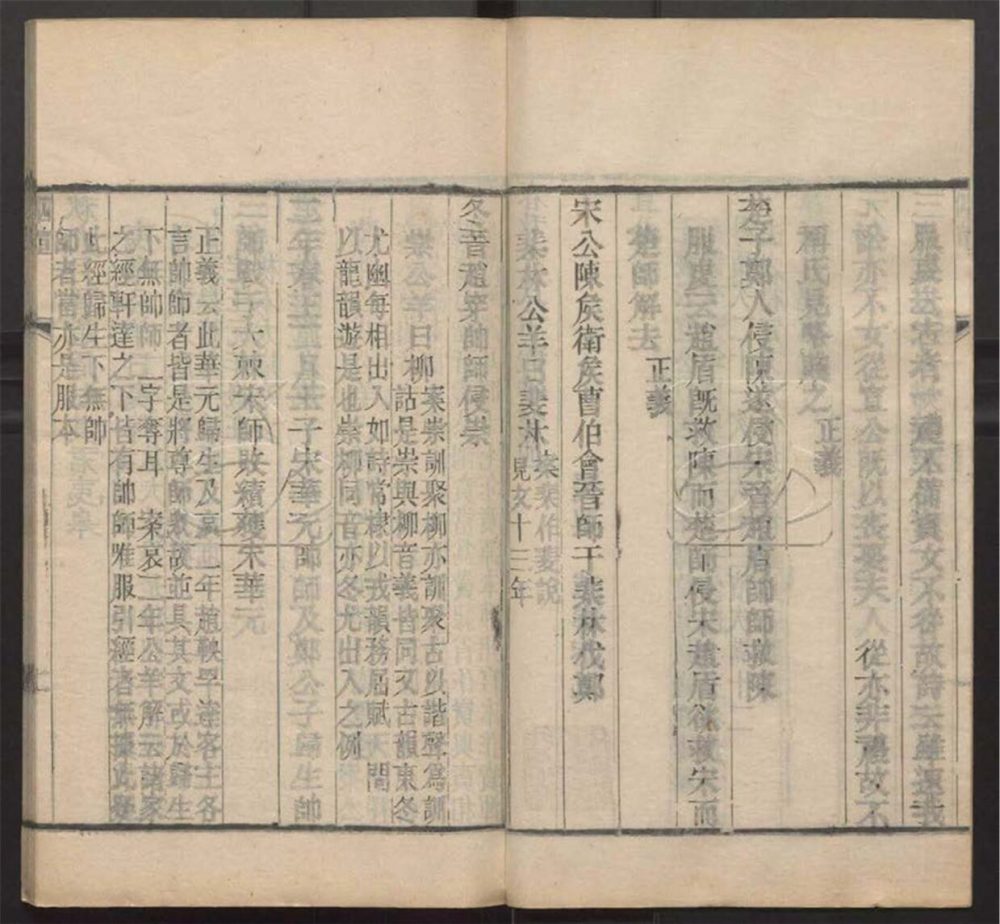 服虔云古者一禮不備貞女不從故詩云雖速我
訟亦不女從宣公既以喪娶夫人從亦非禮故不
稱氏見略賤之 正義
楚子鄭人侵陳遂侵宋晉趙盾帥師救陳
服虔云趙盾既救陳而楚師侵宋趙盾欲救宋而
楚師解去 正義
宋公陳矦衛矦曹伯會晉師于棐林伐鄭
棐林公羊曰斐林
案棐伯斐說
見文十三年
冬晉趙穿帥師侵崇
崇公羊曰柳
案崇訓聚柳亦訓聚古以諧聲爲訓
詁是崇與柳音義皆同又古韻東冬
尤幽每相出入如詩常棣以戎韻務屈賦天問
以龍韻游是也崇柳同音亦冬尤出入之例
二年春王二月壬子宋華元帥師及鄭公子歸生帥
師戰于大棘宋師敗績獲宋華元
正義云此華元歸生及哀二年趙鞅罕達客主各
言帥師者皆是將尊師衆故並具其文或於歸生
下無帥師二字奪耳 案哀二年公羊解云諸家
之經軒達之下皆有帥師唯服引經者無據此疑
此經歸生下無帥
師者當亦是服本